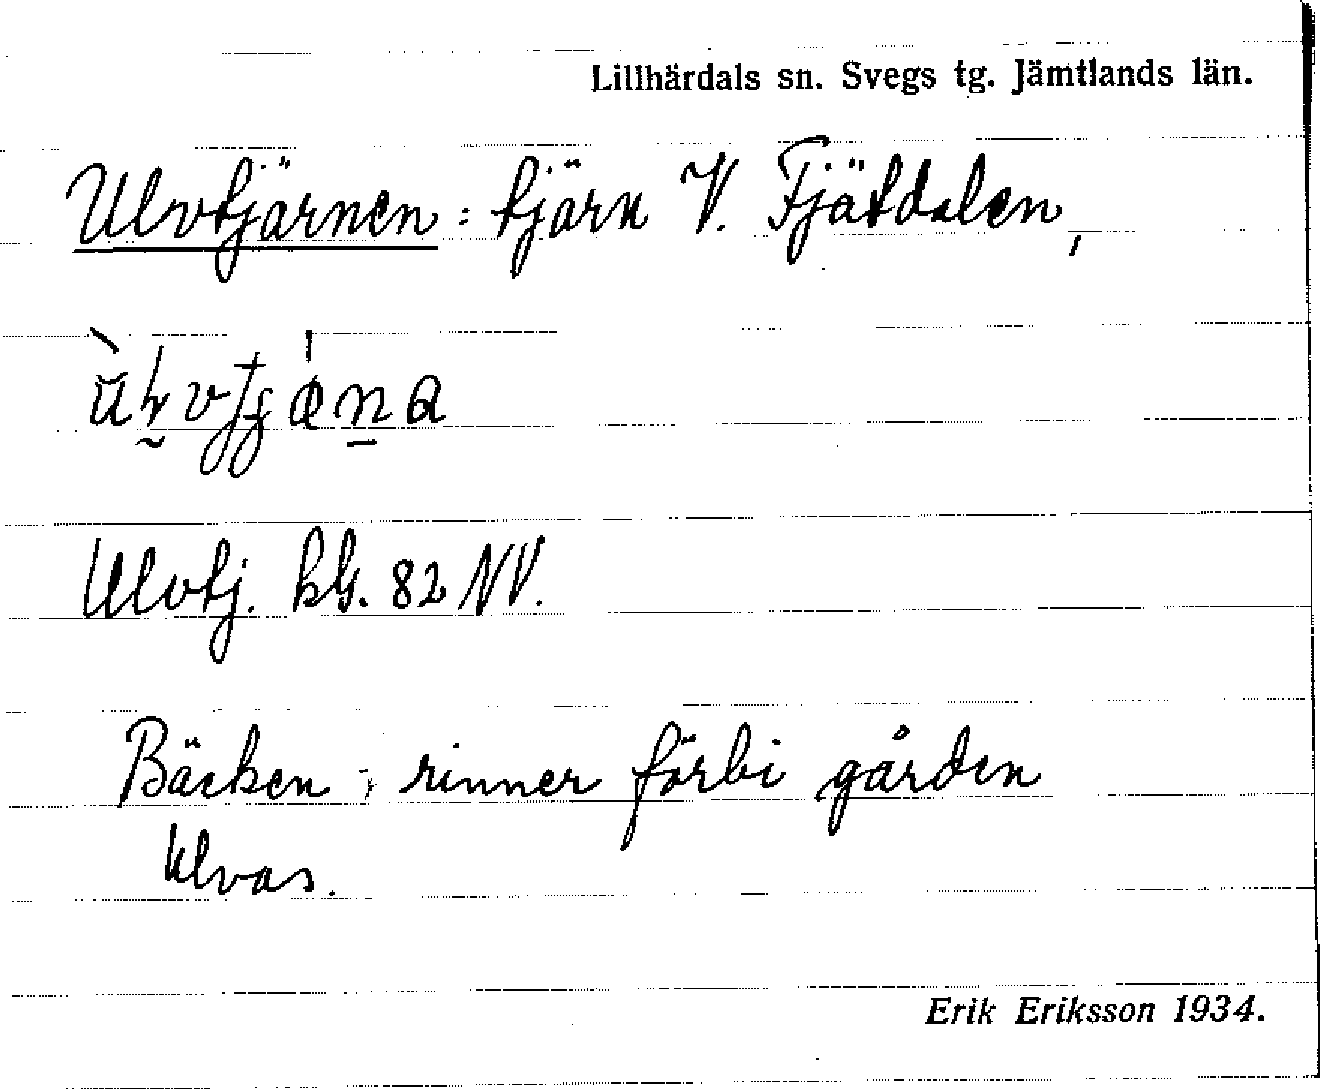 Lillhärdals sn. Svegs tg. Jämtlands län.
Ulvtjärnen: tjärn V. Fjätdalen,
Ulvtj. kbl. 82 NV.
Bäcken, rinner förbi gården
Ulvas.
Erik Eriksson 1934.